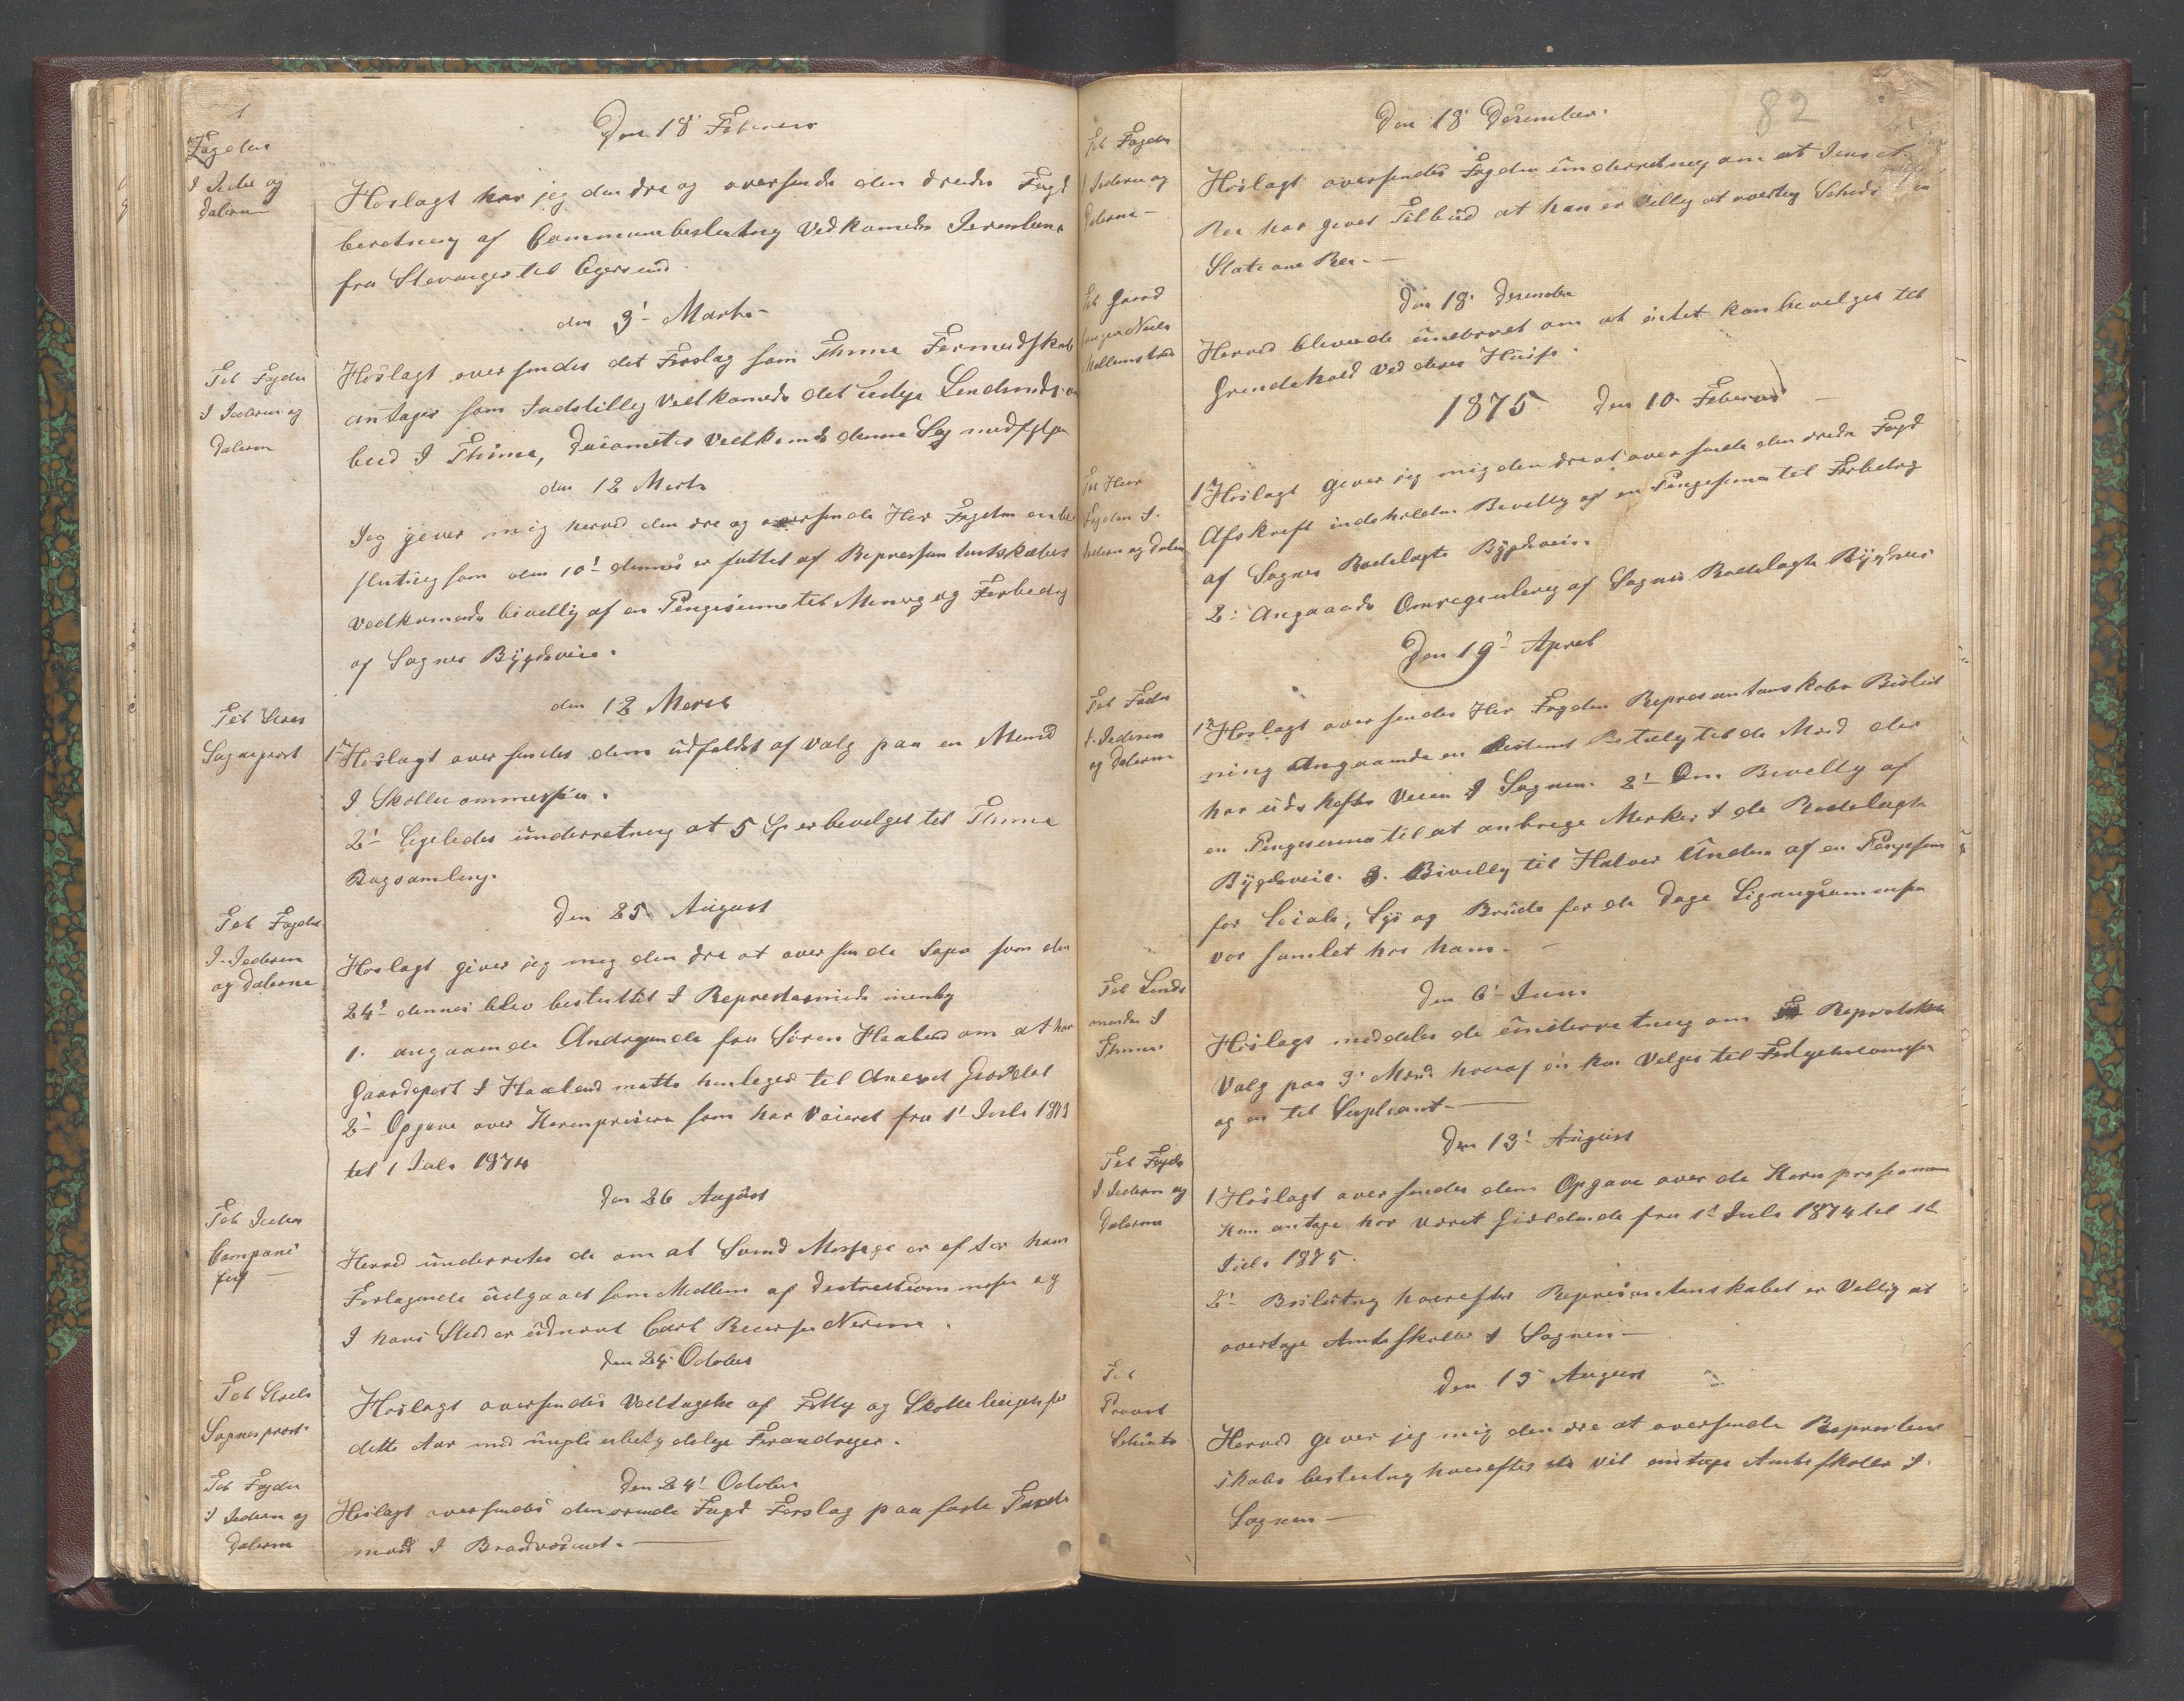 1
Den 18' Februar
Fogden
I Jeder og
Dalerne
Hoslagt har jeg den Ære og oversende den Ærede Fogd
beretning af Communebeslutning Vedkomede Jernbane
fra Stavanger til Egersund.
den 3'- Marts-
Til Fogden
I Jæderen og
Dalerne
Hoslagt over sendes det Forslag som Thime Formandskab
antager som Indstilling Vedkomede det ledige Lendsmands om
bud I Thime, Documeter vedkomende denne Sag medfølger
den 12 Marts
Jeg giver mig herved den ære og oversende Her Fogden enbe
slutning som den 10' dennes er fattet af Representantskabet
vedkomende bevelling af en Pengesum til Merking og Forbedring
af Sognes Bygdeveie.
den 12 Marts
Til Sogneprest
1- Hoslagt over sendes dem udfaldet af Valg paa en Mend
I Skolecommession.
2'- Ligeledes underretning at 5 Sp er bevelget til Thime
Bogsamling.
Den 25. August
Til Fogden
I. Jæderen
og Dalerne
Hoslagt giver jeg mig den Ære at over sende Sager som den
24' dennes blev besluttet I Represtasnieds meenlig
1. angaaende Andragende fra Sören Haaland om at hans
Gaardepart I Haaland matte henleges til Anexet Gjesdal
2'- Opgave over Kornpriserne som har Været fra 1' Juli 1873
til 1 Juli 1874
Den 26 August
Til Jeder
Compani
sief
Herved underrettes de om at Svend Mossige er efter hans
Forlagende udgaaet som Medlem af Destrectscommesion og
I hans Sted er udnevnt Carl Nærem.
Den 24. October
Til
Sogneprest
Hoslagt oversendes Vedtagelse af Fattig og Skolle
dette Aar med nogle ubetydelige Forandreger.
Den 24' October
Til Fogden
I Jedern og
Dalerne
Hoslagt oversendes den ærende Fogd Forslag paa faste Taxts
mænd I Brandvæsenet.
82
Den 18' December.
Til Fogden
I Jederen og
Dalerne-
Hoslagt oversendes Fogden underretning om at Jens
Ree har givet Tilbud at han er Villig at overtag Schuds
Statione Ree.-
Den 18' December
Til Gaard
Herved bleve de underret om at intet kan bevelges til
Grendehold ved deres Huse.
1875 Den 10. Februar
Til Herr
Fogden I.
Jedern og Daler
1- Hoslagt giver jeg mig den Ære at over sende den ærede Fogd
Afskreft indeholder Bevelling af en Pengesum til Forbedring
af Sognes Rodelagte Bygdeveie.
2'- Angaaende Omreguulering af Sognes Rodelagte Bygdveie
Den 19' April
Til Foden
I. Jederen
og Dalerne
1- Hoslagt over sendes Her Fogden Representanskabes Beslut
ning Angaaende en Bestemt Betaling til de Mænd der
har udskefte Veien I Sognen. 2'- Om Bevelling af
en Pengesum til at anbrege Merker I de Rodelagte
Bygdeveie. 3. Bevelling til Halver Undem af en Pengesum
for Locale, Lys og Brude for de Dage Ligningscommesion
var samlet hos ham.-
Den 6'- Juni
Til Lends
manden I
Thime
Hoslagt meddeles de underretning om Representskab
Valg paa 3' Mænd hvoraf en kan Velges til
og en til Supleant-
Den 13' August
Til Fogden
I Jedern og
Dalerne
1 Hoslagt oversendes dem Opgave over de Korn prise man
kan antage har Været Gieldende fra 1t Juli 1874 til 1t
Juli 1875.
2'- Beslutning hvorefter Represantanskabet er Vellig at
overtage Amtsskolle I Sognen-
Den 13 August
Til
Provst
Schiøtz
Herved giver jeg mig den ære at oversende Representant
skabs beslutning hvorefter de vil antage Amtsskolle I.
Sognen-